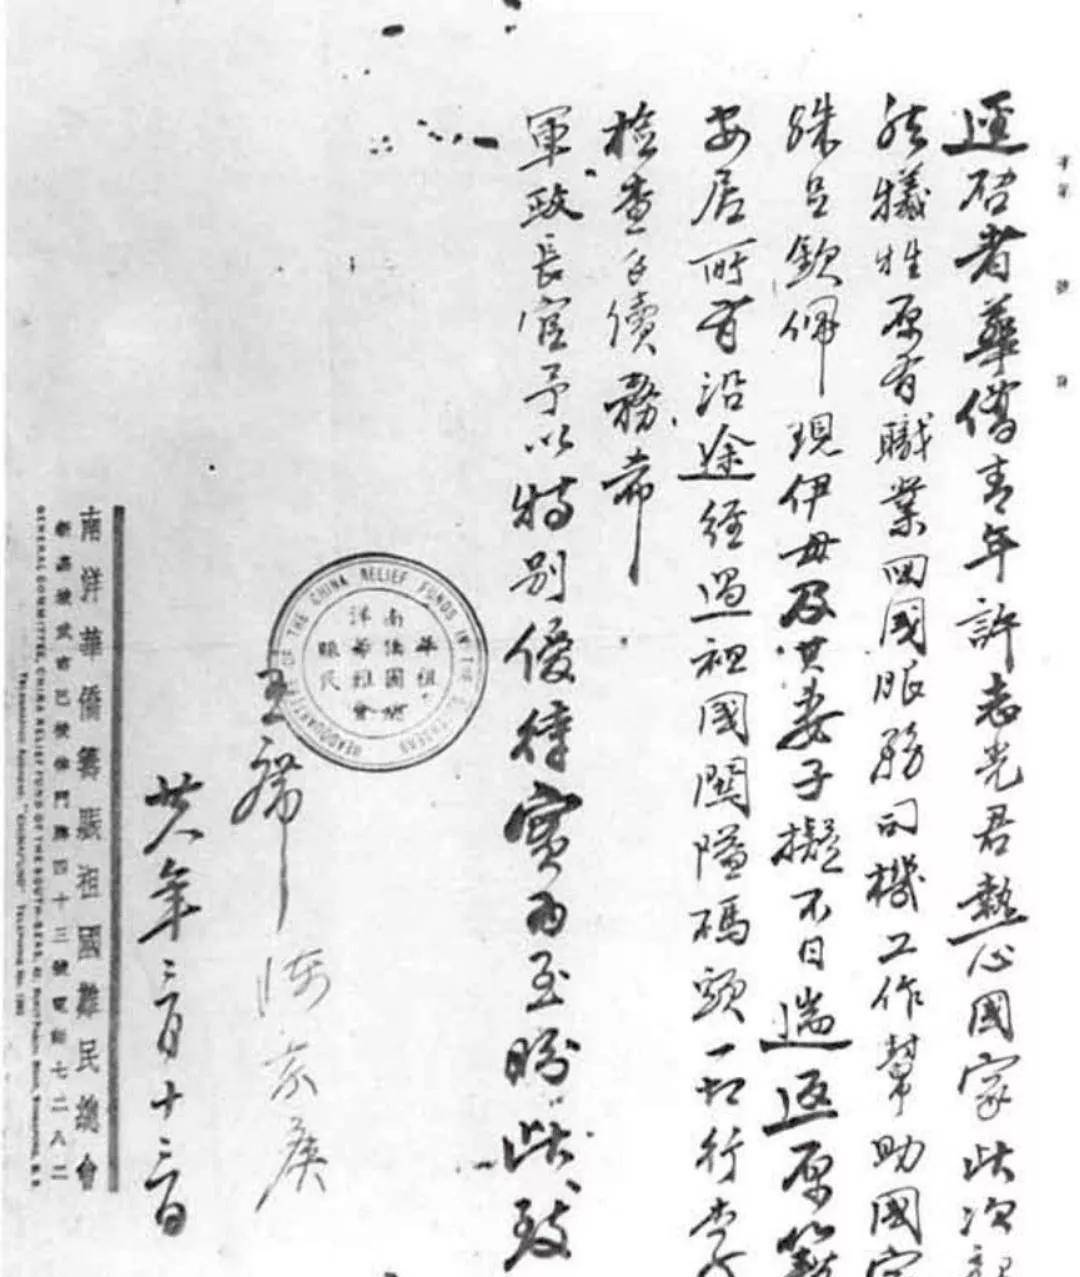 字第 號 頁
逕啓者華僑青年許志光君熱心國家此次
犧牲原有職業回國服務司機工作幫助國家
殊足欽佩現伊母及其妻子擬不日遄返原籍
安居所有沿途經過祖國關隘碼頭一切行李
檢查手續務希
軍政長官予以特別優待實為至盼此致
主席 陳嘉庚
廿八年三月十三日
南洋華僑籌賑祖國難民總會
新嘉坡武吉巴梳律門牌四十三號電話七二八二
GENERAL COMMITTEE, CHINA RELIEF FUND OF THE SOUTH SEAS, 43, Bukit Pasoh Road, Singapore, S.S.
Telegraphic Address: "CHINAFUND" TELEPHONE No. 7282
HEADQUARTERS OF THE CHINA RELIEF FUNDS IN THE S. OVERSEAS
南洋華僑籌賑祖國難民總會